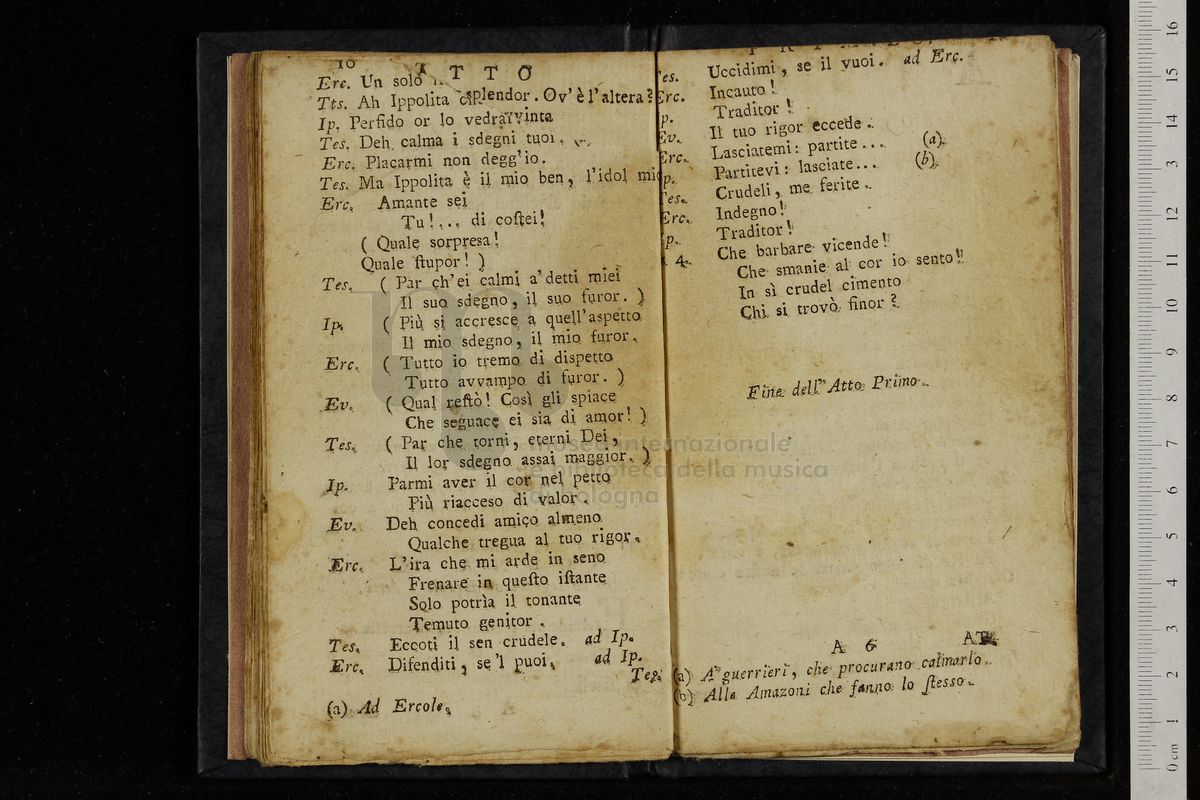 10 ATTO
Erc. Un solo
Tts. Ah Ippolita splendor. Ov' è l'altera?
Ip. Perfido or lo vedrai vinta
Tes. Deh calma i sdegni tuoi.
Erc. Placarmi non degg'io.
Tes. Ma Ippolita è il mio ben, l'idol mio
Erc. Amante sei
Tu!... di coſtei!
( Quale sorpresa!
Quale ſtupor! )
Tes. ( Par ch'ei calmi a' detti miei
Il suo sdegno, il suo furor. )
Ip. ( Più si accresce a quell'aspetto
Il mio sdegno, il mio furor.
Erc. ( Tutto io tremo di dispetto
Tutto avvampo di furor. )
Ev. ( Qual reſtò! Così gli spiace
Che seguace ei sia di amor! )
Tes. ( Par che torni, eterni Dei,
Il lor sdegno assai maggior. )
Ip. Parmi aver il cor nel petto
Più riacceso di valor.
Ev. Deh concedi amico almeno
Qualche tregua al tuo rigor.
Erc. L'ira che mi arde in seno
Frenare in queſto iſtante
Solo potrìa il tonante
Temuto genitor.
Tes. Eccoti il sen crudele. ad Ip.
Erc. Difenditi, se 'l puoi. ad Ip.
Tes.
(a) Ad Ercole.
PRIMO.
Tes. Uccidimi, se il vuoi. ad Erc.
Erc. Incauto!
Ip. Traditor!
Ev. Il tuo rigor eccede.
Erc. Lasciatemi: partite... (a)
Ip. Partitevi: lasciate... (b)
Tes. Crudeli, me ferite.
Erc. Indegno!
Ip. Traditor!
a 4. Che barbare vicende!
Che smanie al cor io sento!
In sì crudel cimento
Chi si trovò finor?
Fine dell' Atto Primo.
A 6 AT
(a) A' guerrieri, che procurano calmarlo.
(b) Alle Amazoni che fanno lo ſtesso.
museo internazionale
e biblioteca della musica
di bologna
16
15
14
13
12
11
10
9
8
7
6
5
4
3
2
1
0 cm